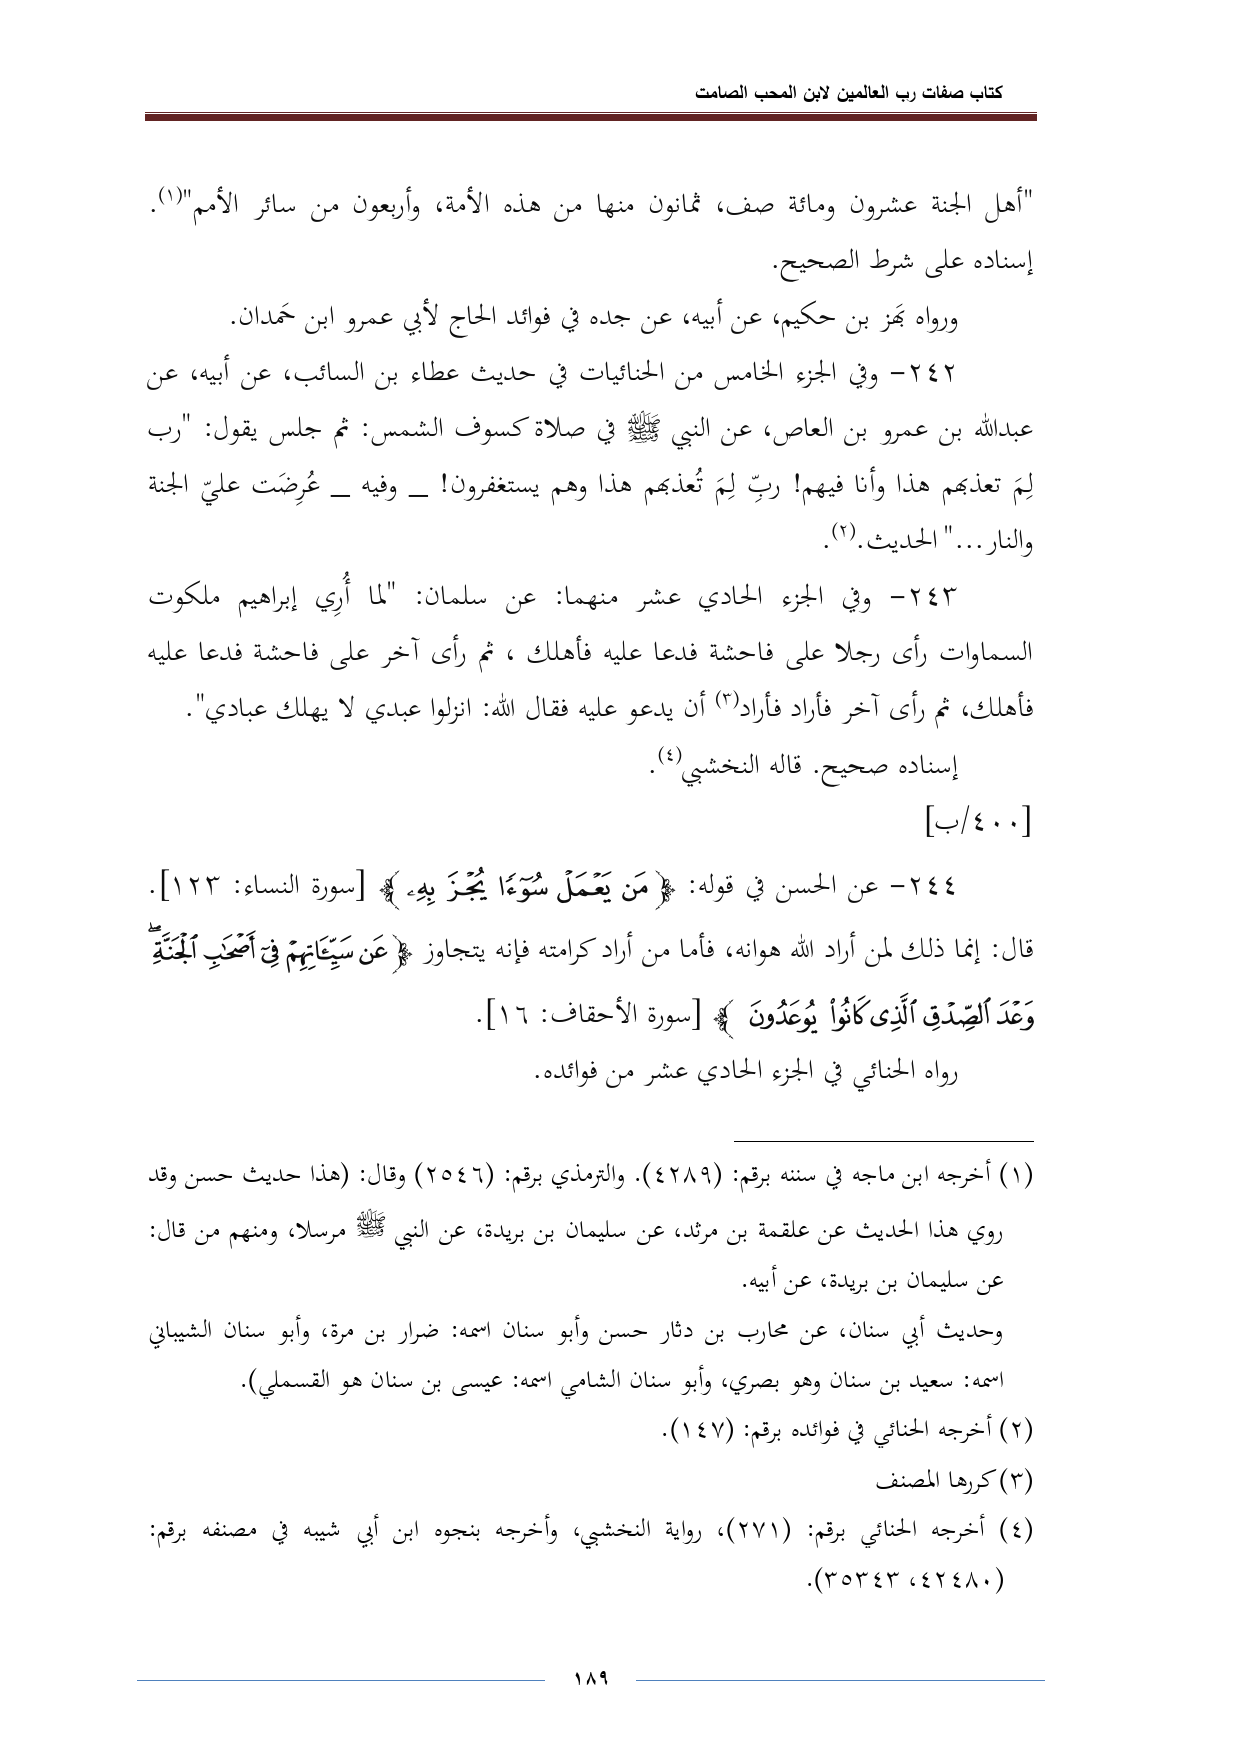 كتاب صفات رب العالمين لابن المحب الصامت
"أهل الجنة عشرون ومائة صف، ثمانون منها من هذه الأمة، وأربعون من سائر الأمم"(١).
إسناده على شرط الصحيح.
ورواه بَهز بن حكيم، عن أبيه، عن جده في فوائد الحاج لأبي عمرو ابن حَمدان.
٢٤٢- وفي الجزء الخامس من الحنائيات في حديث عطاء بن السائب، عن أبيه، عن
عبدالله بن عمرو بن العاص، عن النبي ﷺ في صلاة كسوف الشمس: ثم جلس يقول: "رب
لِمَ تعذبهم هذا وأنا فيهم! ربِّ لِمَ تُعذبهم هذا وهم يستغفرون! _ وفيه _ عُرِضَت عليّ الجنة
والنار..." الحديث.(٢).
٢٤٣- وفي الجزء الحادي عشر منهما: عن سلمان: "لما أُرِي إبراهيم ملكوت
السماوات رأى رجلا على فاحشة فدعا عليه فأهلك ، ثم رأى آخر على فاحشة فدعا عليه
فأهلك، ثم رأى آخر فأراد فأراد(٣) أن يدعو عليه فقال الله: انزلوا عبدي لا يهلك عبادي".
إسناده صحيح. قاله النخشبي(٤).
[٤٠٠/ب]
٢٤٤- عن الحسن في قوله: ﴿ مَن يَعۡمَلۡ سُوٓءٗا يُجۡزَ بِهِۦ ﴾ [سورة النساء: ١٢٣].
قال: إنما ذلك لمن أراد الله هوانه، فأما من أراد كرامته فإنه يتجاوز ﴿ عَن سَيِّـَٔاتِهِمۡ فِيٓ أَصۡحَٰبِ ٱلۡجَنَّةِۖ
وَعۡدَ ٱلصِّدۡقِ ٱلَّذِي كَانُواْ يُوعَدُونَ ﴾ [سورة الأحقاف: ١٦].
رواه الحنائي في الجزء الحادي عشر من فوائده.
(١) أخرجه ابن ماجه في سننه برقم: (٤٢٨٩). والترمذي برقم: (٢٥٤٦) وقال: (هذا حديث حسن وقد
روي هذا الحديث عن علقمة بن مرثد، عن سليمان بن بريدة، عن النبي ﷺ مرسلا، ومنهم من قال:
عن سليمان بن بريدة، عن أبيه.
وحديث أبي سنان، عن محارب بن دثار حسن وأبو سنان اسمه: ضرار بن مرة، وأبو سنان الشيباني
اسمه: سعيد بن سنان وهو بصري، وأبو سنان الشامي اسمه: عيسى بن سنان هو القسملي).
(٢) أخرجه الحنائي في فوائده برقم: (١٤٧).
(٣) كررها المصنف
(٤) أخرجه الحنائي برقم: (٢٧١)، رواية النخشبي، وأخرجه بنحوه ابن أبي شيبه في مصنفه برقم:
(٤٢٤٨٠، ٣٥٣٤٣).
١٨٩